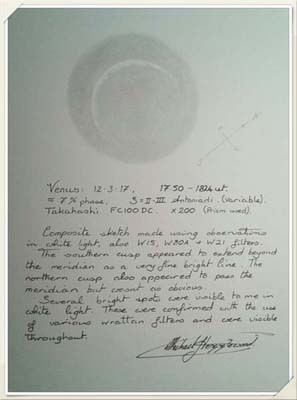 Venus: 12-3-17, 1750-1824 ut.
≈ 7% phase, S=II-III Antoniadi (Variable).
Takahashi FC100DC. x200 (Prism used)
Composite sketch made using observations
in white light, also W15, W80A + W21 filters.
The southern cusp appeared to extend beyond
the meridian as a very fine bright line. The
northern cusp also appeared to pass the
meridian but wasnt as obvious.
Several bright spots were visible to me in
white light. These were confirmed with the use
of various wratten filters and were visible
throughout.